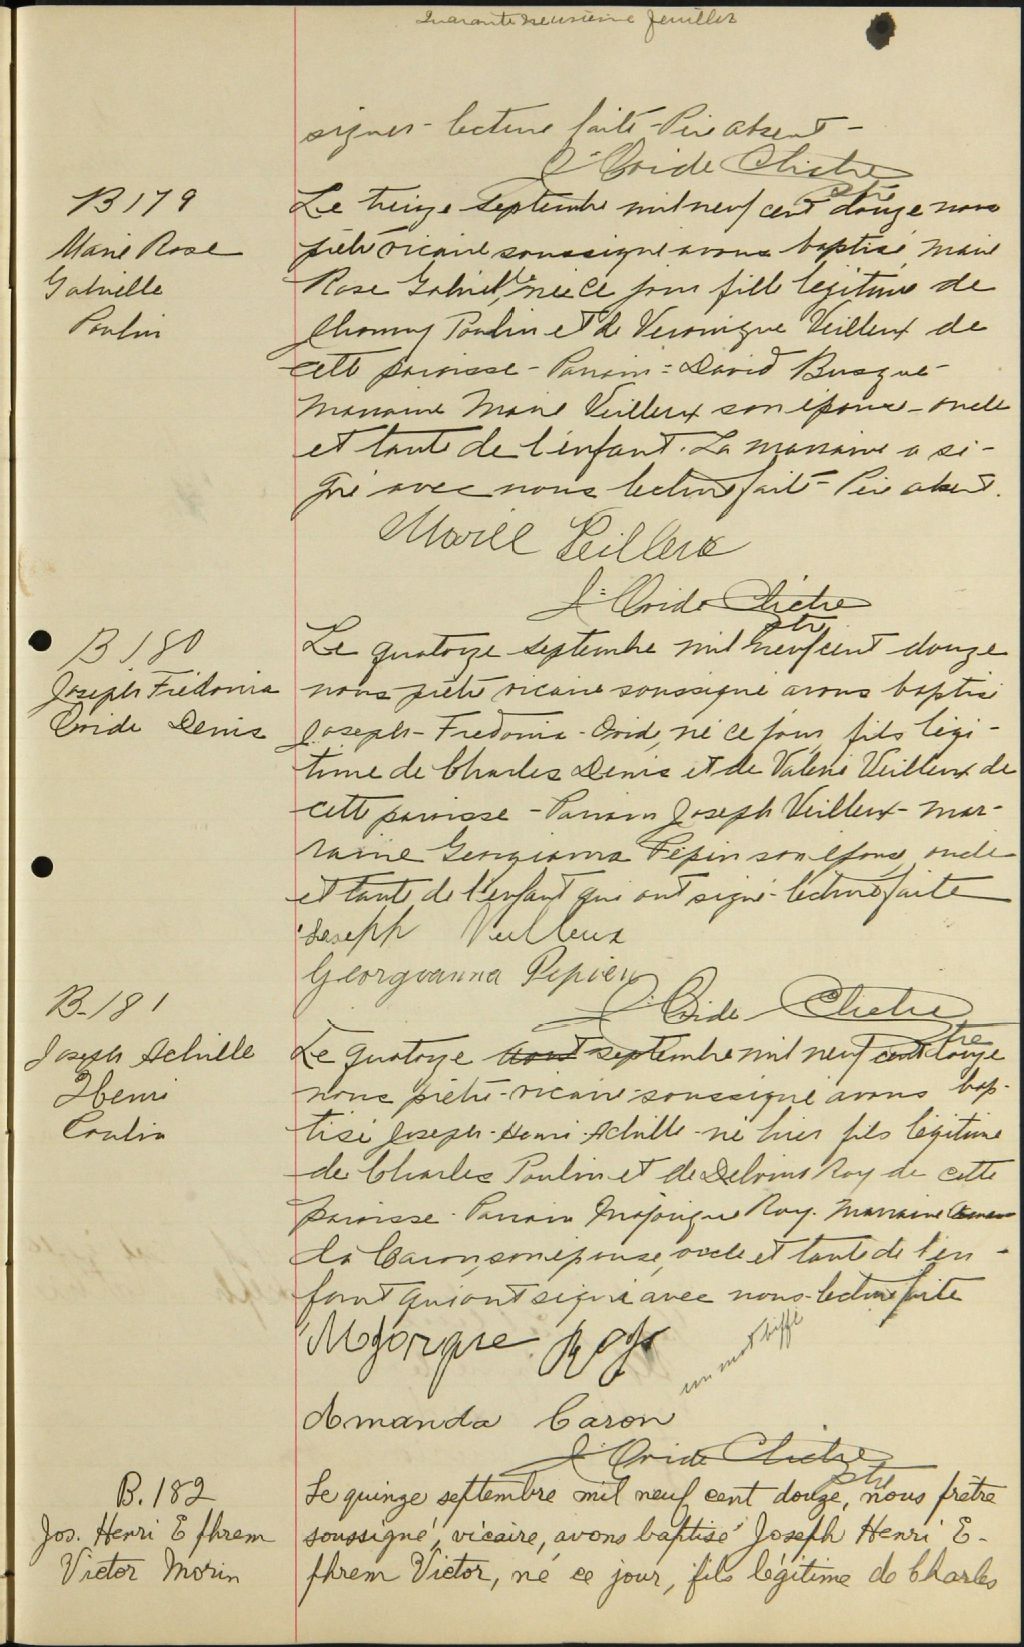 Quarante neuvième feuillet
signer - lecture faite - Père absent -
J. Ovide Cliche
ptre
B 179
Marie Rose
Gabrielle
Poulin
Le treize septembre mil neuf cent douze nous
prêtre vicaire soussigné avons baptisé Marie
Rose Gabrielle, née ce jour fille légitime de
Thommy Poulin et de Veronique Veilleux de
cette paroisse - Parrain = David Busque -
marraine Marie Veilleux son épouse - oncle
et tante de l'enfant. La marraine a si-
gné avec nous lecture faite - Père absent.
Marie Veilleux
J. Ovide Cliche
ptre
B 180
Joseph Frédonia
Ovide Denis
Le quatorze septembre mil neuf cent douze
nous prêtre vicaire soussigné avons baptisé
Joseph - Fredonia - Ovid, né ce jour, fils légi-
time de Charles Denis et de Valerie Veilleux de
cette paroisse - Parrain Joseph Veilleux - mar-
raine Georgianna Pépin son épouse, oncle
et tante de l'enfant qui ont signé - lecture faite
Joseph Veilleux
Georgianna Pepien
J. Ovide Cliche
ptre
B-181
Joseph Achille
Henri
Poulin
Le quatorze aout septembre mil neuf cent douze
nous prêtre - vicaire - soussigné avons bap-
tisé Joseph - Henri - Achille - né hier fils légitime
de Charles Poulin et de Delvina Roy de cette
paroisse - Parrain Majorique Roy. Marraine Aman
da Caron, son épouse, oncle et tante de l'en-
fant qui ont signé avec nous - lecture faite
Mjorque Roy
un mot biffé
Amanda Caron
J. Ovide Cliche
ptre
B. 182
Jos. Henri Ephrem
Victor Morin
Le quinze septembre mil neuf cent douze, nous prêtre
soussigné, vicaire, avons baptisé Joseph Henri E-
phrem Victor, né ce jour, fils légitime de Charles